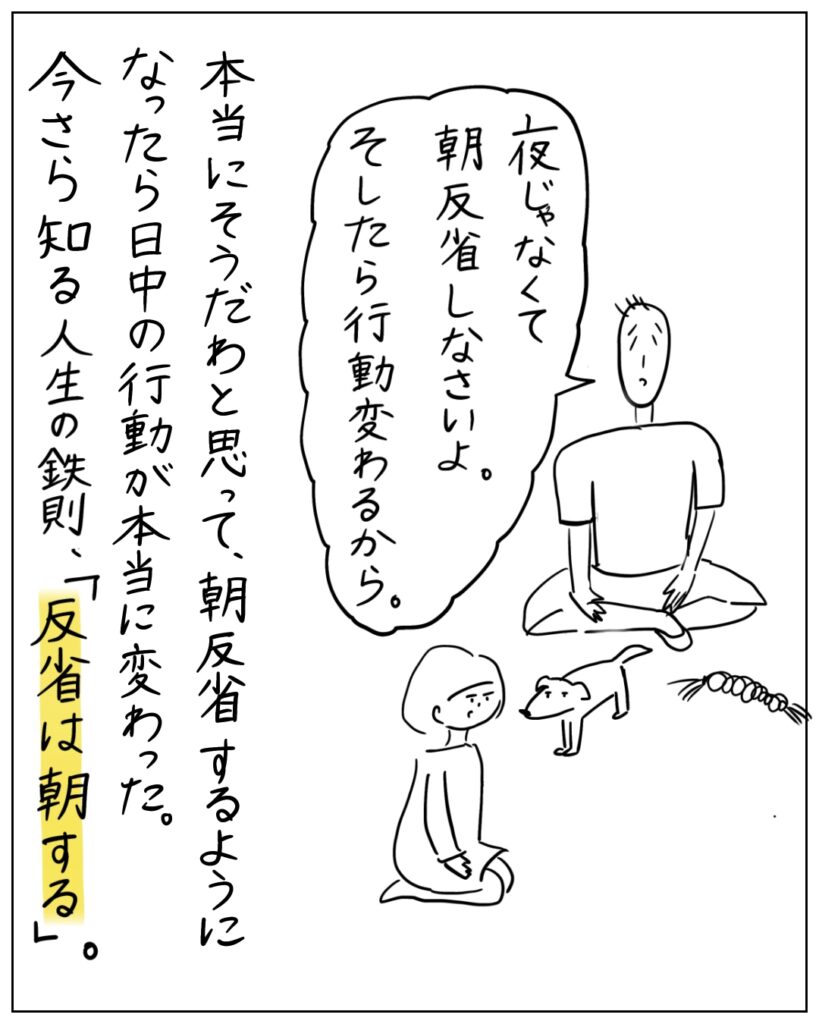 夜じゃなくて
朝反省しなさいよ。
そしたら行動変わるから。
本当にそうだわと思って、朝反省するように
なったら日中の行動が本当に変わった。
今さら知る人生の鉄則、「反省は朝する」。